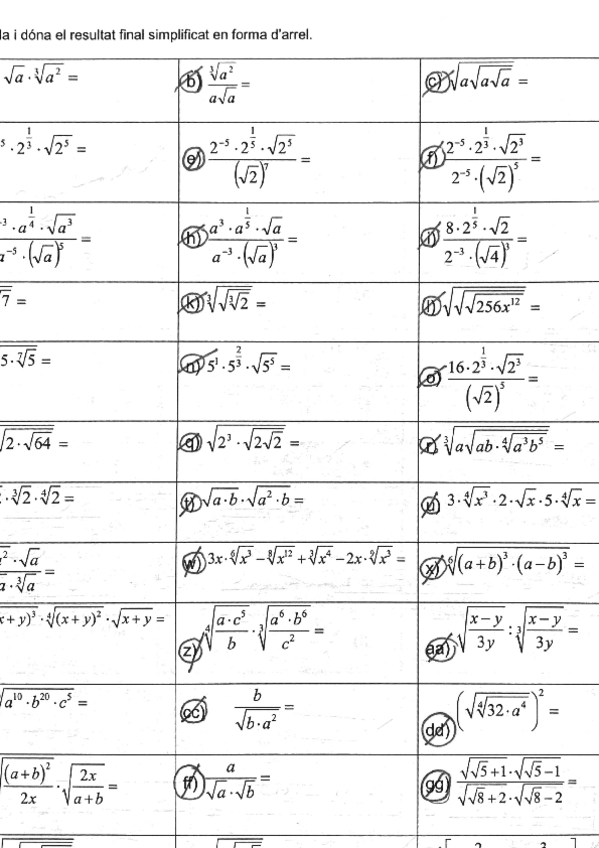 la i dóna el resultat final simplificat en forma d'arrel.
√a · ∛a² =
b) ∛a² / (a√a) =
c) √(a√(a√a)) =
⁵ · 2^(1/3) · √2⁵ =
e) (2⁻⁵ · 2^(1/5) · √2⁵) / (√2)⁷ =
f) (2⁻⁵ · 2^(1/3) · √2³) / (2⁻⁵ · (√2)⁵) =
⁻³ · a^(1/4) · √a³ / a⁻⁵ · (√a)⁵ =
h) (a³ · a^(1/5) · √a) / (a⁻³ · (√a)³) =
i) (8 · 2^(1/5) · √2) / (2⁻³ · (√4)³) =
7 =
k) ∛√∛2 =
l) √√√(256x¹²) =
5 · ⁷√5 =
n) 5¹ · 5^(2/3) · √5⁵ =
o) (16 · 2^(1/3) · √2³) / (√2)⁵ =
√(2 · √64) =
q) √(2³ · √(2√2)) =
r) ∛(a√(ab · ⁴√(a³b⁵))) =
· ∛2 · ∜2 =
t) √(a · b) · √(a² · b) =
u) 3 · ⁴√x³ · 2 · √x · 5 · ⁴√x =
² · √a / a · ∛a =
w) 3x · ⁶√x³ − ⁸√x¹² + ∛x⁴ − 2x · ⁹√x³ =
x) ⁶√((a + b)³ · (a − b)³) =
x + y)³ · ⁴√(x + y)² · √(x + y) =
z) ⁴√(a · c⁵ / b) · ∛(a⁶ · b⁶ / c²) =
aa) √((x − y) / 3y) : ∛((x − y) / 3y) =
√(a¹⁰ · b²⁰ · c⁵) =
cc) b / √(b · a²) =
dd) (√⁴√(32 · a⁴))² =
√((a + b)² / 2x) · √(2x / (a + b)) =
ff) a / (√a · √b) =
gg) (√(√5 + 1) · √(√5 − 1)) / (√(√8 + 2) · √(√8 − 2)) =